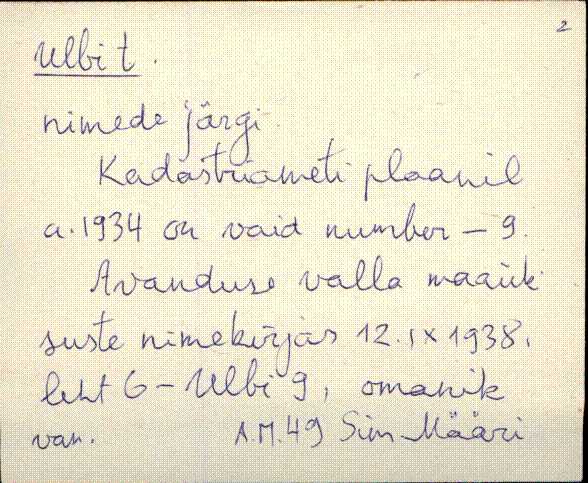 2
Ulbi t.
nimede järgi.
Kadastriameti plaanil
a. 1934 on vaid number – 9.
Avanduse valla maaük-
suste nimekirjas 12. IX 1938,
leht 6 – Ulbi 9, omanik
van. A.M. 49 Sim Määri